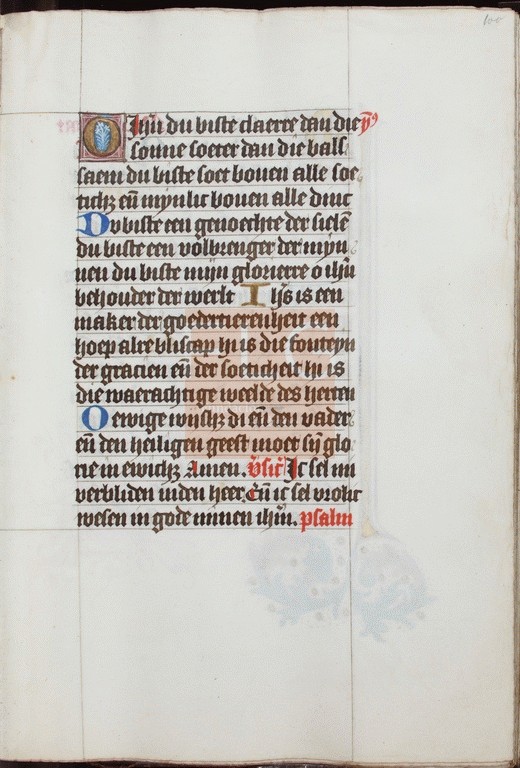 100
O Ihũ du biste claerre dan die ỹ⁹
sonne soeter dan die bals
saem du biste soet bouen alle soe
tichz eñ mynlic bouen alle dinc
Du biste een genoechte der sielẽ
du biste een volbrenger der myn
nen du biste mijn glorierre o ihũ
behouder der werlt Ihs is een
maker der goedertierenheit een
hoep alre bliscap hi is die fonteyn
der gracien eñ der soeticheit hi is
die waerachtige weelde des herten
O ewige wijshz di eñ den vader
eñ den heiligen geest moet sij glo
rie in ewichz Amen. v̉sic̉ Ic sel mi
verbliden inden heer. Eñ ic sel vrolic
wesen in gode minen ihũ. psalm